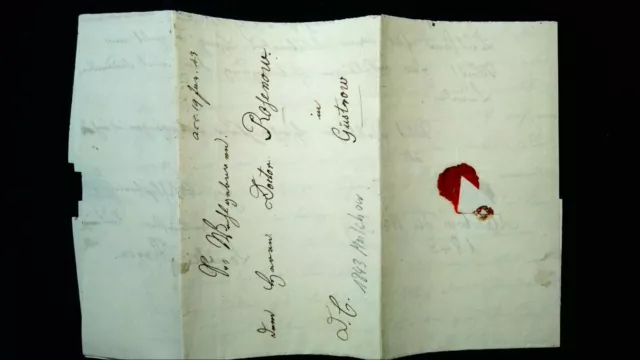 acc. 19 Jan. 43
Sr Wohlgeboren
dem Herrn Doctor Rosenow
in
Güstrow
d. C. 1843 Malchow